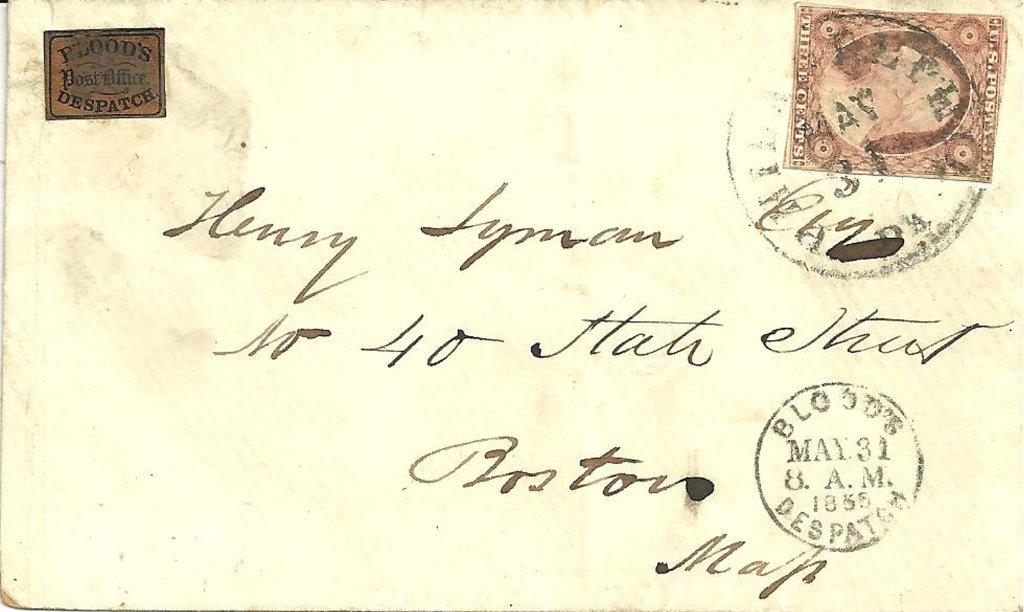 BLOOD'S
Post Office
DESPATCH
U.S. POSTAGE
THREE CENTS
MAY
31
Henry Lyman Esq
No 40 State Street
Boston
Mass
BLOOD'S
MAY. 31
8. A. M.
DESPATCH